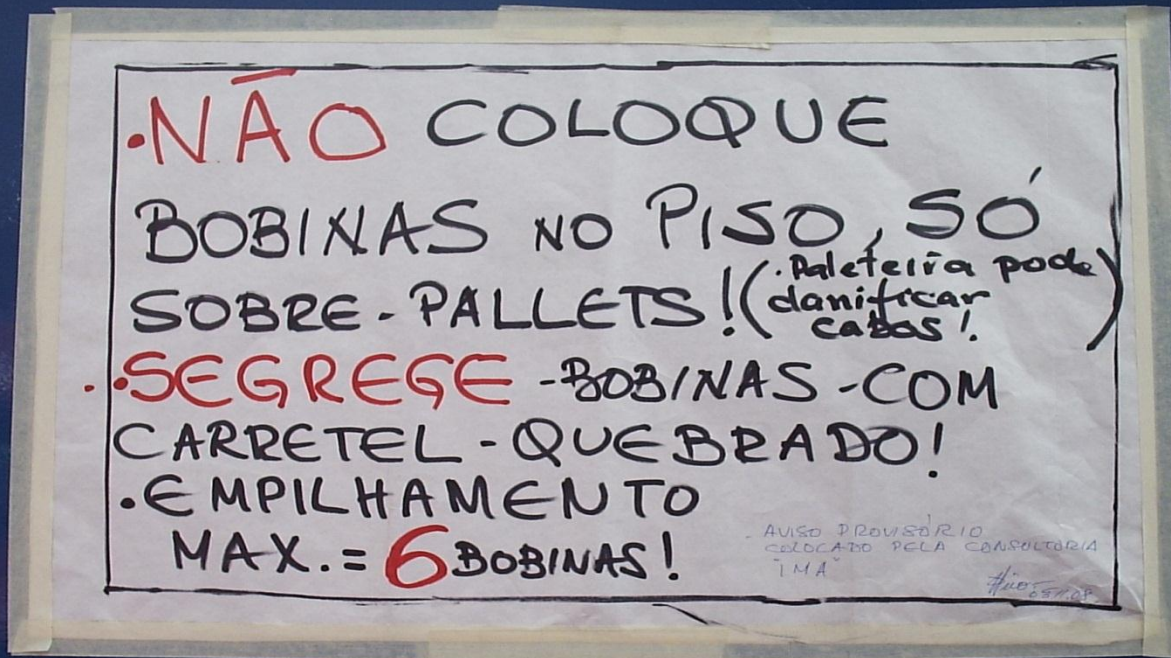 .NÃO COLOQUE
BOBINAS NO PISO, SÓ
SOBRE - PALLETS! (. Paleteira pode
danificar
cabos!)
. .SEGREGE - BOBINAS - COM
CARRETEL - QUEBRADO!
.EMPILHAMENTO
MAX. = 6 BOBINAS!
- AVISO PROVISÓRIO
COLOCADO PELA CONSULTORIA
"IMA"